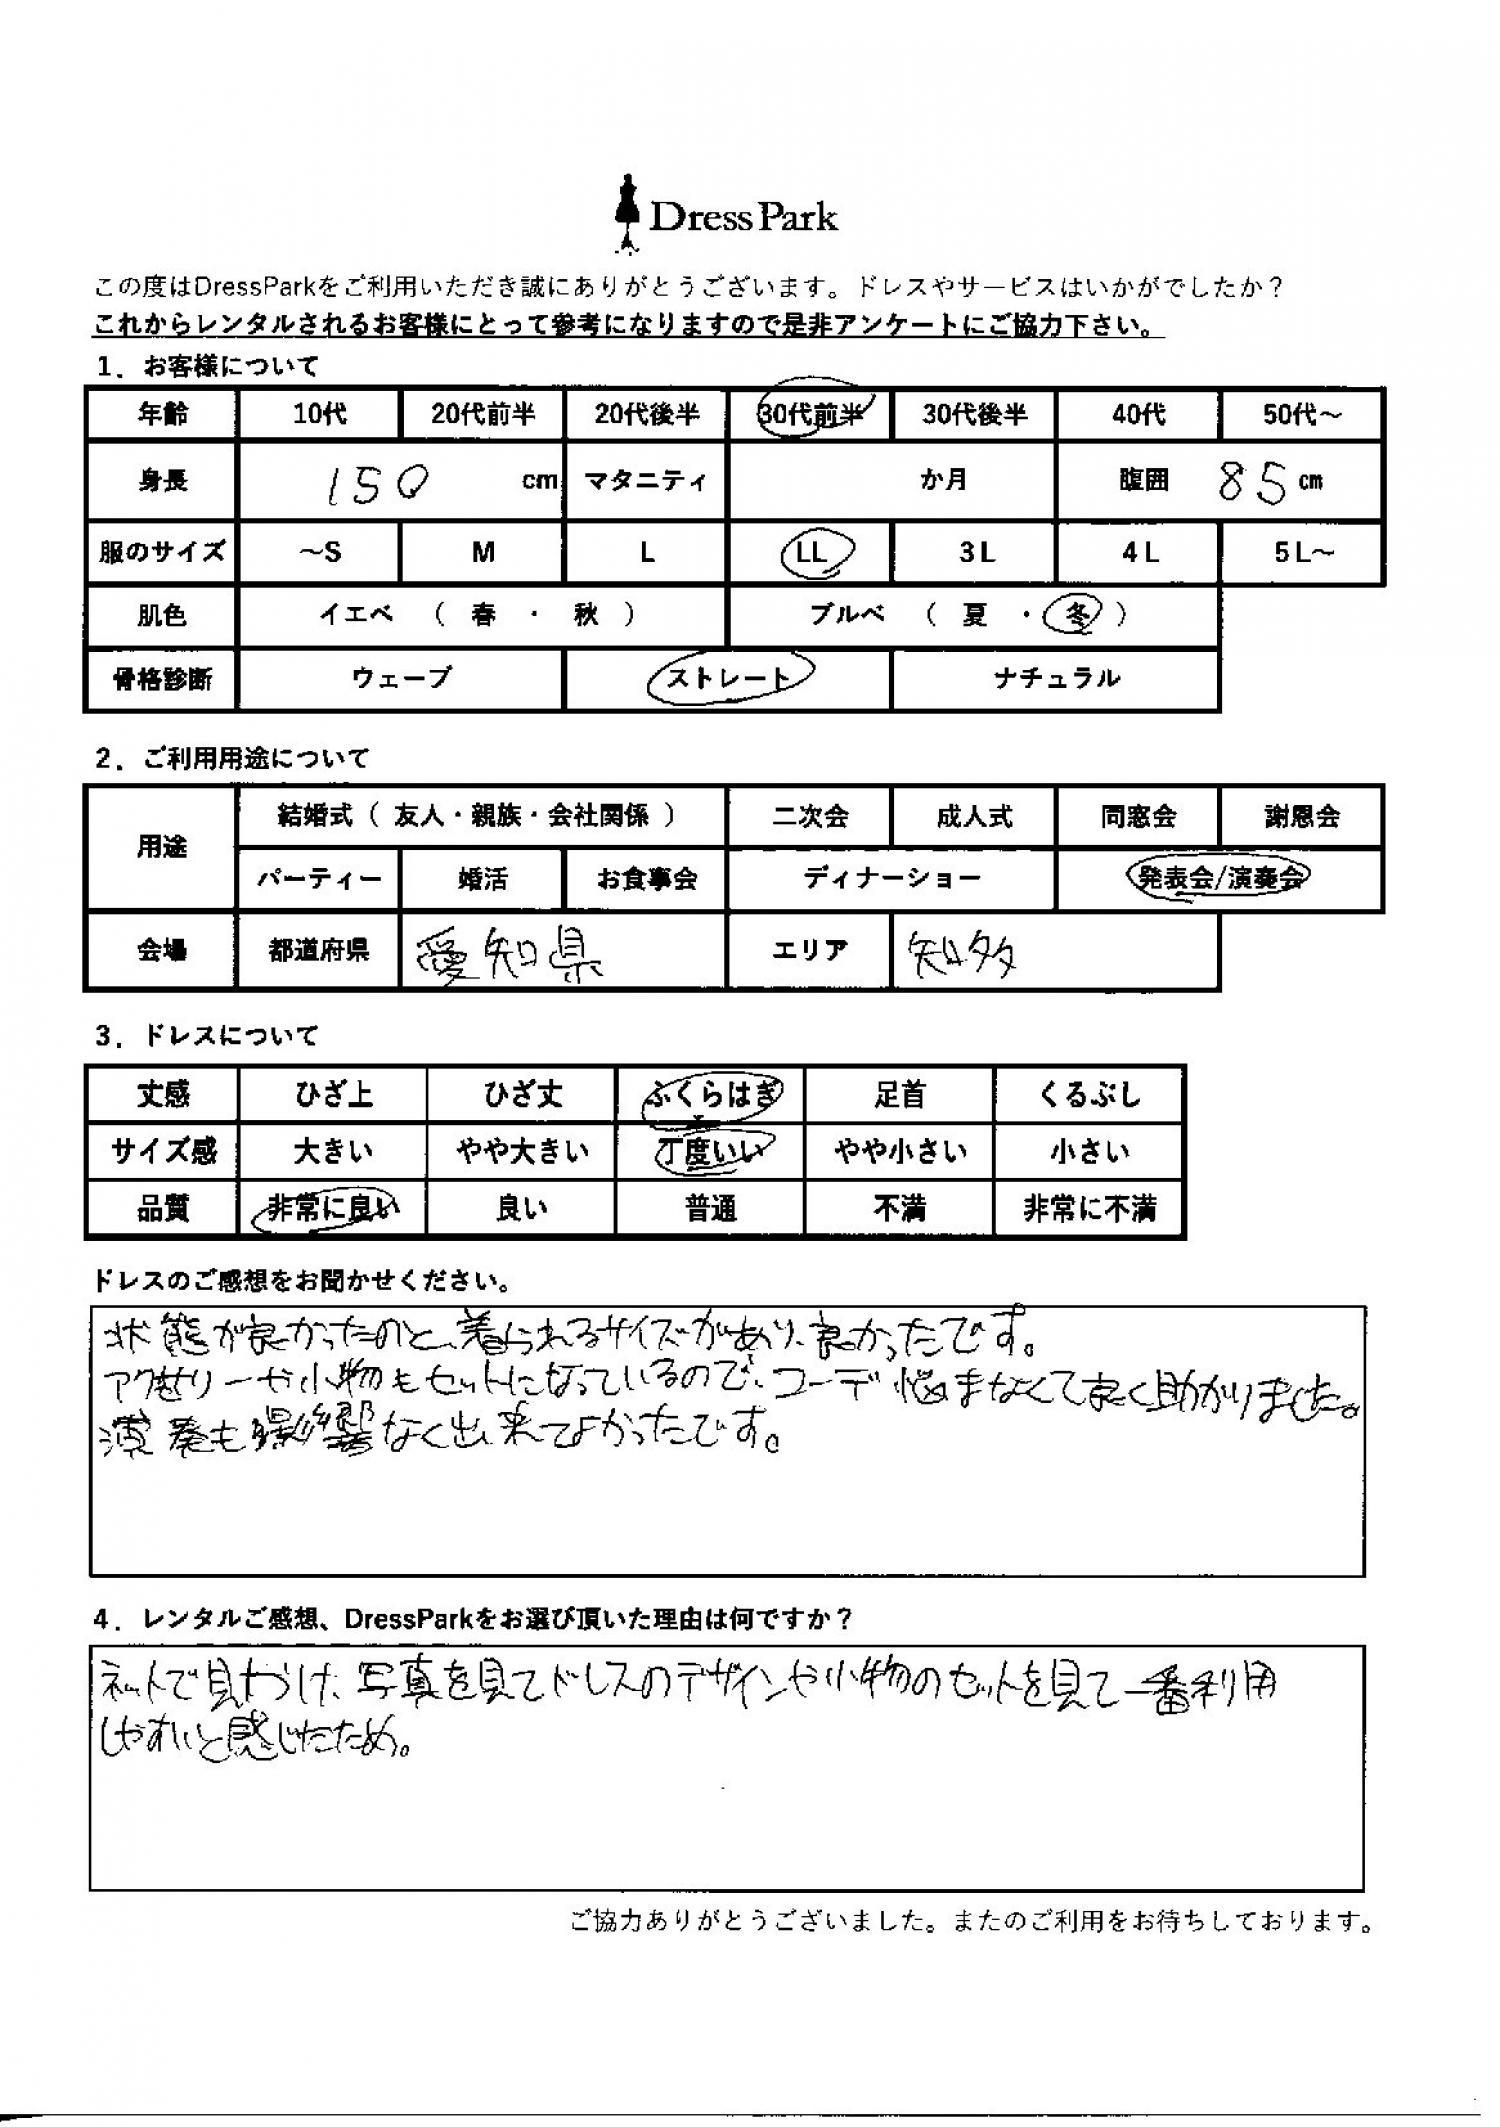 Dress Park
この度はDressParkをご利用いただき誠にありがとうございます。ドレスやサービスはいかがでしたか？
これからレンタルされるお客様にとって参考になりますので是非アンケートにご協力下さい。
1．お客様について
年齢 10代 20代前半 20代後半 30代前半 30代後半 40代 50代～
身長 150 cm マタニティ か月 腹囲 85 cm
服のサイズ ～S M L LL 3L 4L 5L～
肌色 イエベ （ 春 ・ 秋 ） ブルベ （ 夏 ・ 冬 ）
骨格診断 ウェーブ ストレート ナチュラル
2．ご利用用途について
用途 結婚式（ 友人・親族・会社関係 ） 二次会 成人式 同窓会 謝恩会
パーティー 婚活 お食事会 ディナーショー 発表会/演奏会
会場 都道府県 愛知県 エリア 知多
3．ドレスについて
丈感 ひざ上 ひざ丈 ふくらはぎ 足首 くるぶし
サイズ感 大きい やや大きい 丁度いい やや小さい 小さい
品質 非常に良い 良い 普通 不満 非常に不満
ドレスのご感想をお聞かせください。
状態が良かったのと、着られるサイズがあり、良かったです。
アクセサリーや小物もセットになっているので、コーデ悩まなくて良く助かりました。
演奏も影響なく出来てよかったです。
4．レンタルご感想、DressParkをお選び頂いた理由は何ですか？
ネットで見かけ、写真を見てドレスのデザインや小物のセットを見て一番利用
しやすいと感じたため。
ご協力ありがとうございました。またのご利用をお待ちしております。